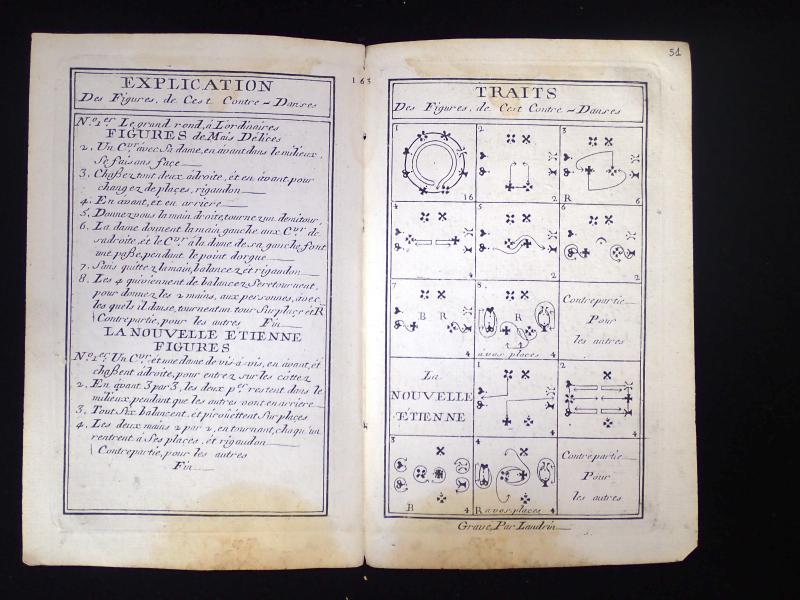 EXPLICATION
Des Figures, de Cest Contre-Danses
N.º 1.er Le grand rond, à L'ordinaires
FIGURES de Mais Délices
2. Un C.vr avec Sa dame, en avant dans le milieux.
Se fais ans face
3. Chaßez tout deux àdroite, ét en ávant pour
changez de plaçes, rigaudon
4. En ávant, ét en arriere
5. Donnez vous la main droite, tournez un demi tour,
6. La dame donnent la main gauche aux C.vr de
sa droite, ét le C.vr à la dame de sa gauche font
une paße, pendant le point d'orgue
7. Sans quittez la main, balancez ét rigaudon
8. Les 4 qui viennent de balancez se retournent,
pour donnez les 2 mains, aux personnes, avec
les quels il danse, tournent un tour Sur plaçe ét R
Contrepartie, pour les autres Fin
LA NOUVELLE ETIENNE
FIGURES
N.º 1.er Un C.vr ét une dame de vis-à-vis, en ávant, ét
chaßent àdroite, pour entrez sur les côttez
2. En ávant 3 par 3, les deux p.er restent dans le
milieux, pendant que les autres vont en arriere
3. Tout Six balancent, ét piroüettent Sur plaçes
4. Les deux mains 2 par 2, en tournant, chaqu'un
rentrent à Ses plaçes, ét rigaudon
Contrepartie, pour les autres
Fin
163
51
TRAITS
Des Figures, de Cest Contre-Danses
1 2 3
16 2 R 6
4 5 6
2 2
7 8.
B R R
4 a vos places 4
Contrepartie
Pour
les autres
La
NOUVELLE
ÉTIENNE
1 2
4 4
3 4
B 4 R a vos places 4
Contrepartie
Pour
les autres
Gravé, Par Landrin